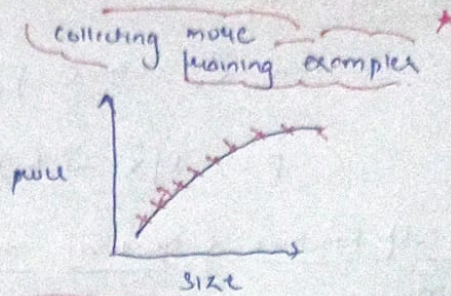 collecting more
training examples
price
size